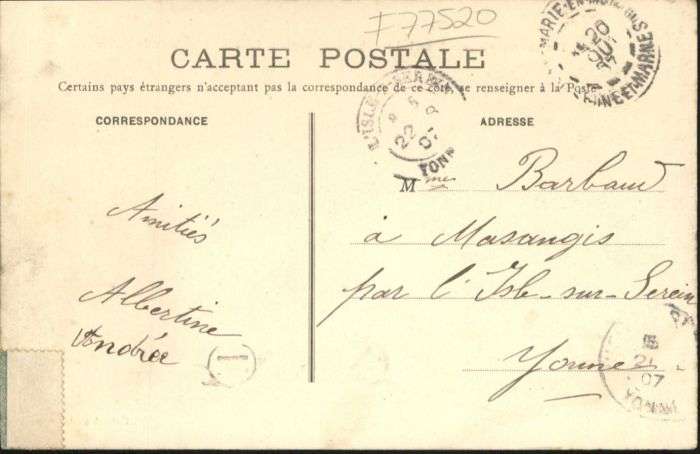 F77520
CARTE POSTALE
Certains pays étrangers n'acceptant pas la correspondance de ce côté, se renseigner à la Poste
CORRESPONDANCE
ADRESSE
Amitiés
Albertine
Andrée
1
Mmes Barbaud
à Masangis
par l'Isle-sur-Serein
Yonne
L'ISLE
YONNE
22
07
MARIE-EN-
26
07
SEINE-ET-MARNE
21
07